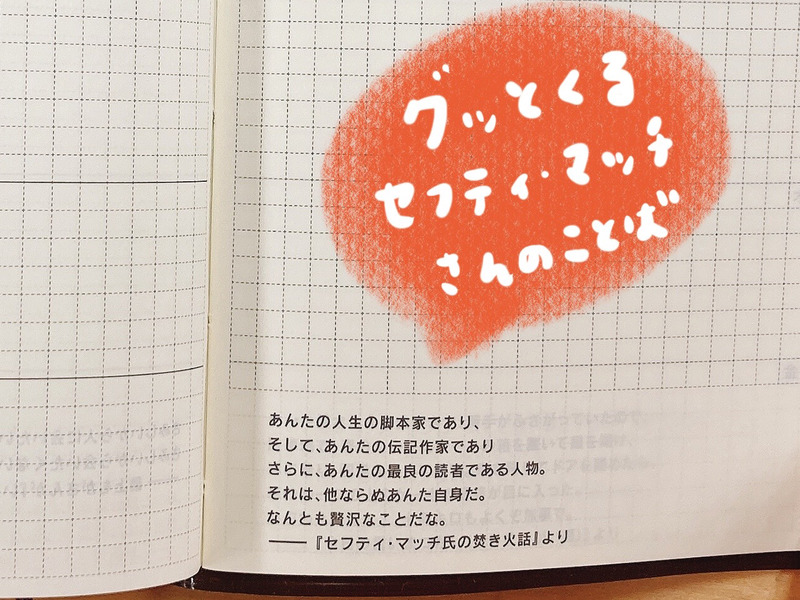 グッとくる
セフティ・マッチ
さんのことば
あんたの人生の脚本家であり、
そして、あんたの伝記作家であり
さらに、あんたの最良の読者である人物。
それは、他ならぬあんた自身だ。
なんとも贅沢なことだな。
――『セフティ・マッチ氏の焚き火話』より